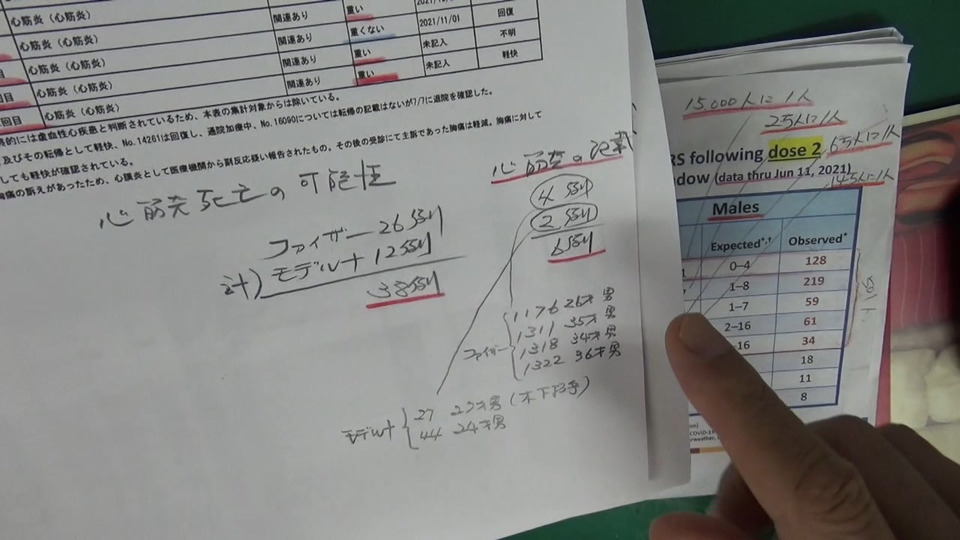 心筋炎（心筋炎） 関連あり 重い
心筋炎（心筋炎） 関連あり 重くない 2021/11/01 回復
回目 心筋炎（心筋炎） 関連あり 重い 未記入 不明
回目 心筋炎（心筋炎） 関連あり 重い 未記入 軽快
的には虚血性心疾患と判断されているため、本表の集計対象からは除いている。
及びその転帰として軽快、No.14261は回復し、通院加療中、No.16090については転帰の記載はないが7/7に退院を確認した。
しても軽快が確認されている。
胸痛の訴えがあったため、心膜炎として医療機関から副反応疑い報告されたもの。その後の受診にて主訴であった胸痛は軽減。胸痛に対して
心筋炎死亡の可能性
ファイザー 26例
計) モデルナ 12例
38例
心筋炎の記載
4例
2例
6例
ファイザー
1176 26才男
1311 35才男
1318 34才男
1322 36才男
モデルナ
27 27才男
44 24才男
15,000人に1人
2万人に1人
RS following dose 2
ndow (data thru Jun 11, 2021)
Males
Expected*,† Observed*
0–4 128
1–8 219
1–7 59
2–16 61
–16 34
18
11
8